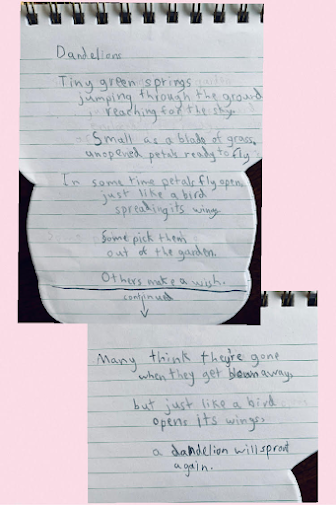 Dandelions
Tiny green springs
jumping through the ground
reaching for the sky.
Small as a blade of grass,
unopened petals ready to fly.
In some time petals fly open
just like a bird
spreading its wings
Some pick them
out of the garden.
Others make a wish.
continued
Many think they're gone
when they get blown away,
but just like a bird
opens its wings,
a dandelion will sprout
again.